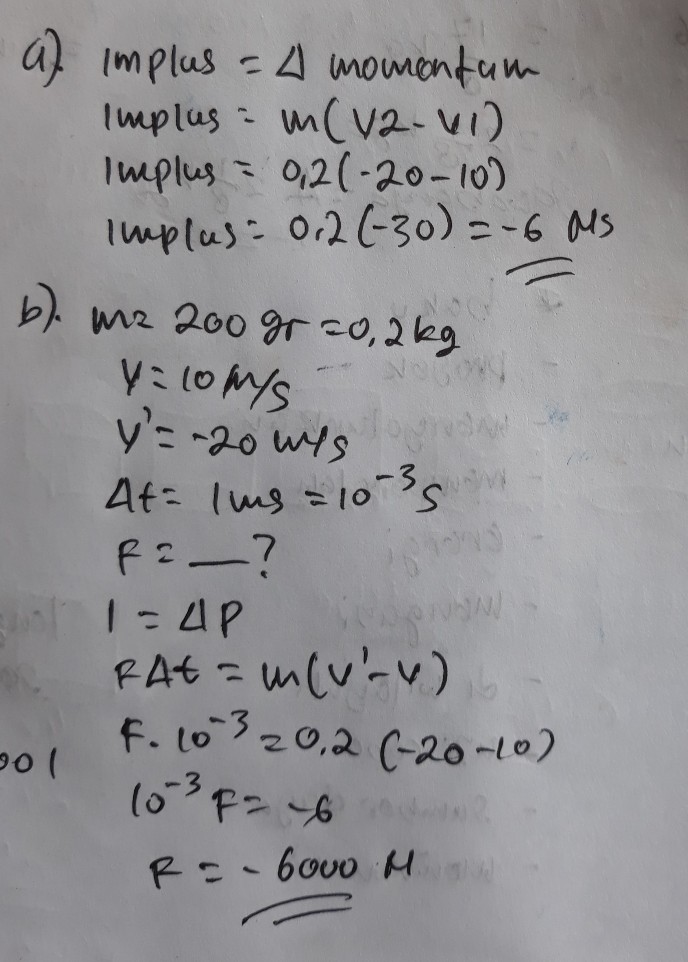 a). Implus = Δ momentum
Implus = m(V2-V1)
Implus = 0,2(-20-10)
Implus = 0,2(-30) = -6 Ns
b). m= 200 gr = 0,2 kg
V = 10 m/s
V' = -20 m/s
Δt = 1 ms = 10⁻³ s
F = — ?
I = ΔP
FΔt = m(v'-v)
F. 10⁻³ = 0,2 (-20-10)
001
10⁻³ F = -6
F = - 6000 N